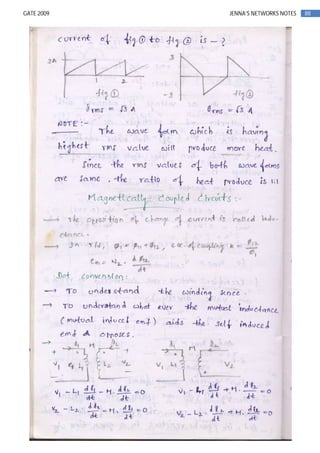 GATE 2009 JENNA'S NETWORKS NOTES 88
current of fig ① to fig ② is - ?
3A 3
1 2
-3
fig ① fig ②
irms = √3 A irms = √3 A
NOTE :-
The wave form which is having
highest rms value will produce more heat.
Since the rms values of both wave forms
are same. the ratio of heat produce is 1:1
Magnetically coupled circuits :-
→ The opposition of change of current is called indu-
ctance.
→ In ϕ1 = ϕ11 + ϕ12, coe. of coupling k = ϕ12/ϕ1
em2 = N2. dϕ12/dt
Dot convension :-
→ To understand the winding sence.
→ To understand what ever the mutual inductance
(mutual induced emf) aids the self induced
emf & opposes.
→ i1 M i2 i1 M i2
V1 L1 L2 V2 V1 L1 L2 V2
V1 - L1 di1/dt - M. di2/dt = 0 V1 - L1 di1/dt + M. di2/dt = 0
V2 - L2. di2/dt - M. di1/dt = 0 V2 - L2. di2/dt + M. di1/dt = 0